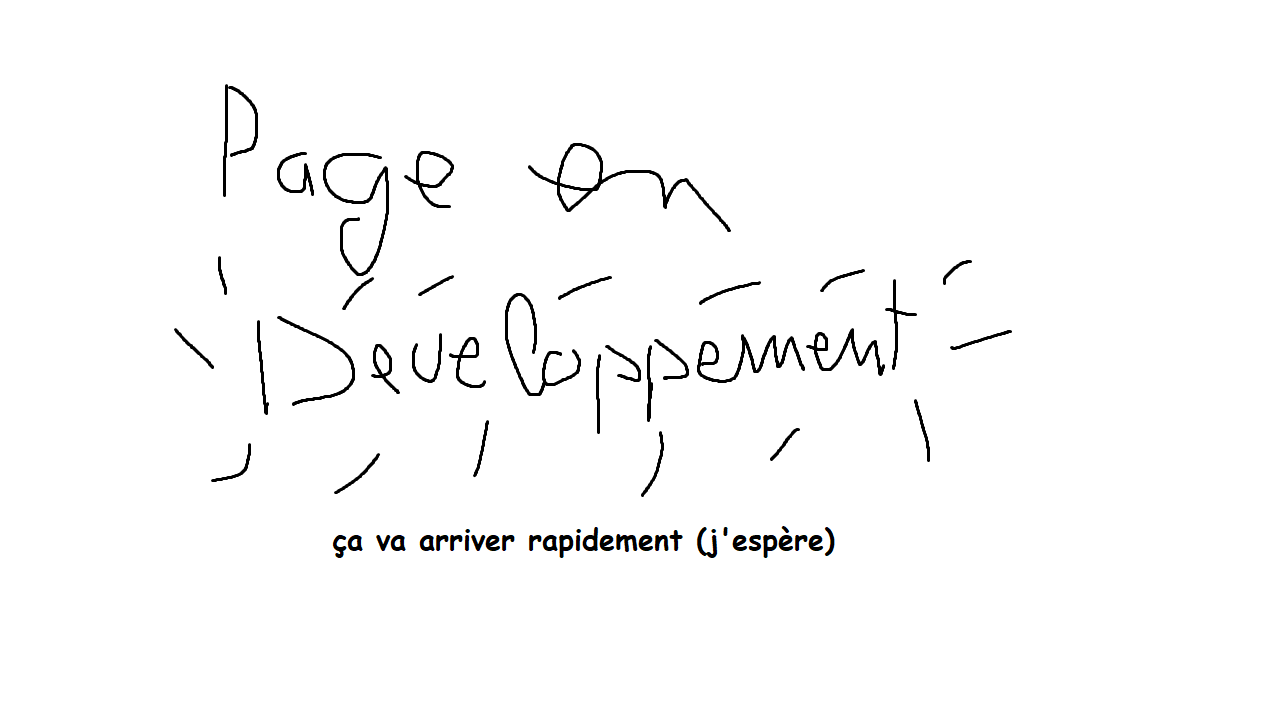 Page en
Développement
ça va arriver rapidement (j'espère)